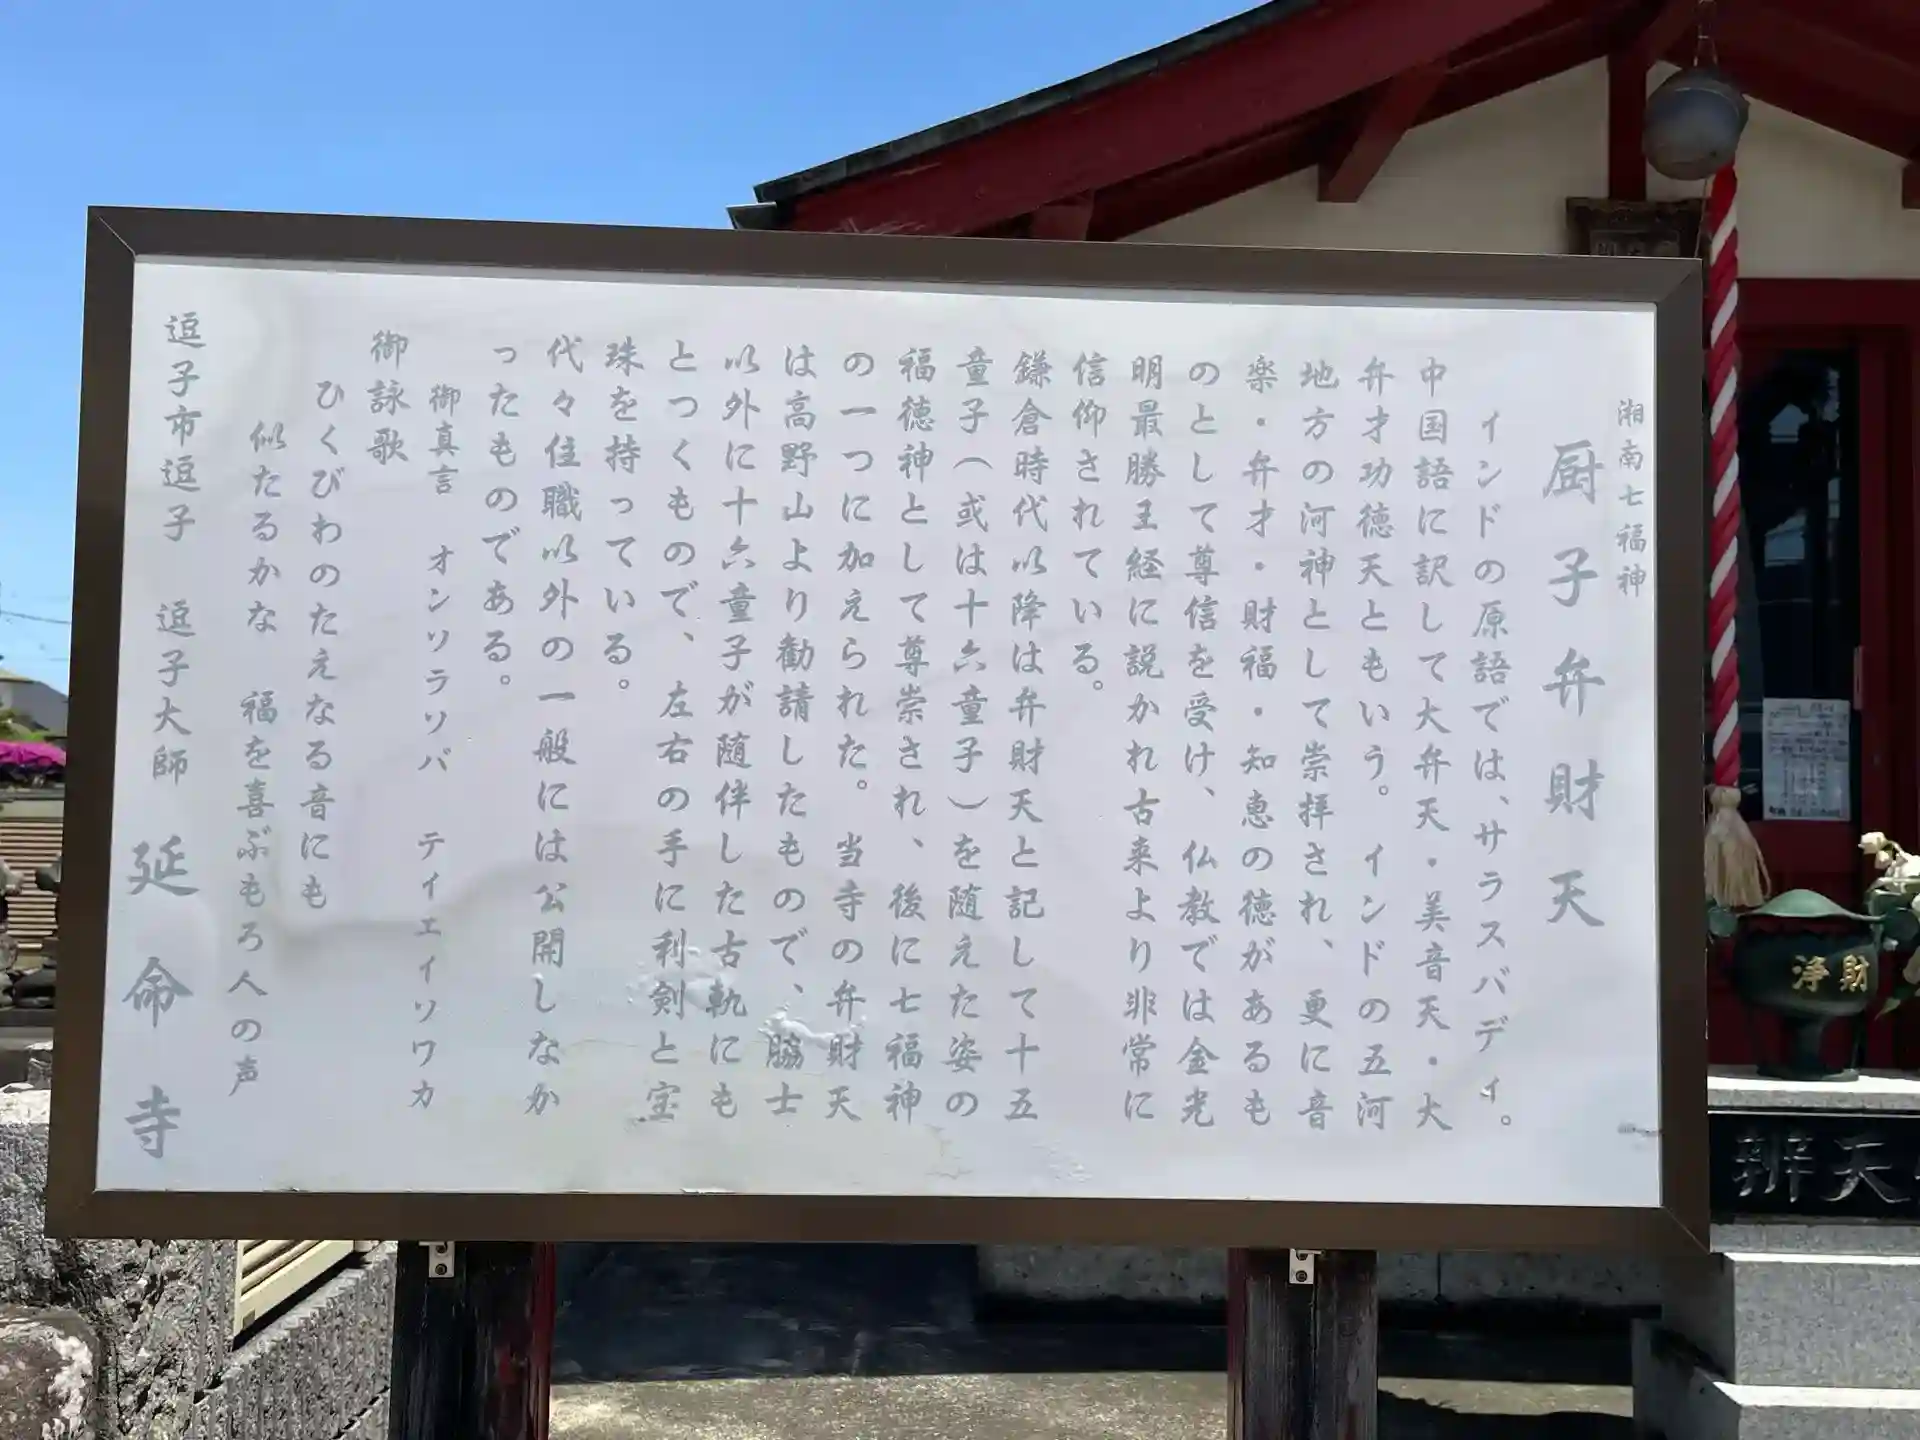 湘南七福神
厨子弁財天
インドの原語では、サラスバディ。
中国語に訳して大弁天・美音天・大
弁才功徳天ともいう。インドの五河
地方の河神として崇拝され、更に音
楽・弁才・財福・知恵の徳があるも
のとして尊信を受け、仏教では金光
明最勝王経に説かれ古来より非常に
信仰されている。
鎌倉時代以降は弁財天と記して十五
童子(或は十六童子)を随えた姿の
福徳神として尊崇され、後に七福神
の一つに加えられた。当寺の弁財天
は高野山より勧請したもので、脇士
以外に十六童子が随伴した古軌にも
とつくもので、左右の手に利剣と宝
珠を持っている。
代々住職以外の一般には公開しなか
ったものである。
御真言 オンソラソバ ティエイソワカ
御詠歌
ひくびわのたえなる音にも
似たるかな 福を喜ぶもろ人の声
逗子市逗子 逗子大師 延命寺
浄財
辨天